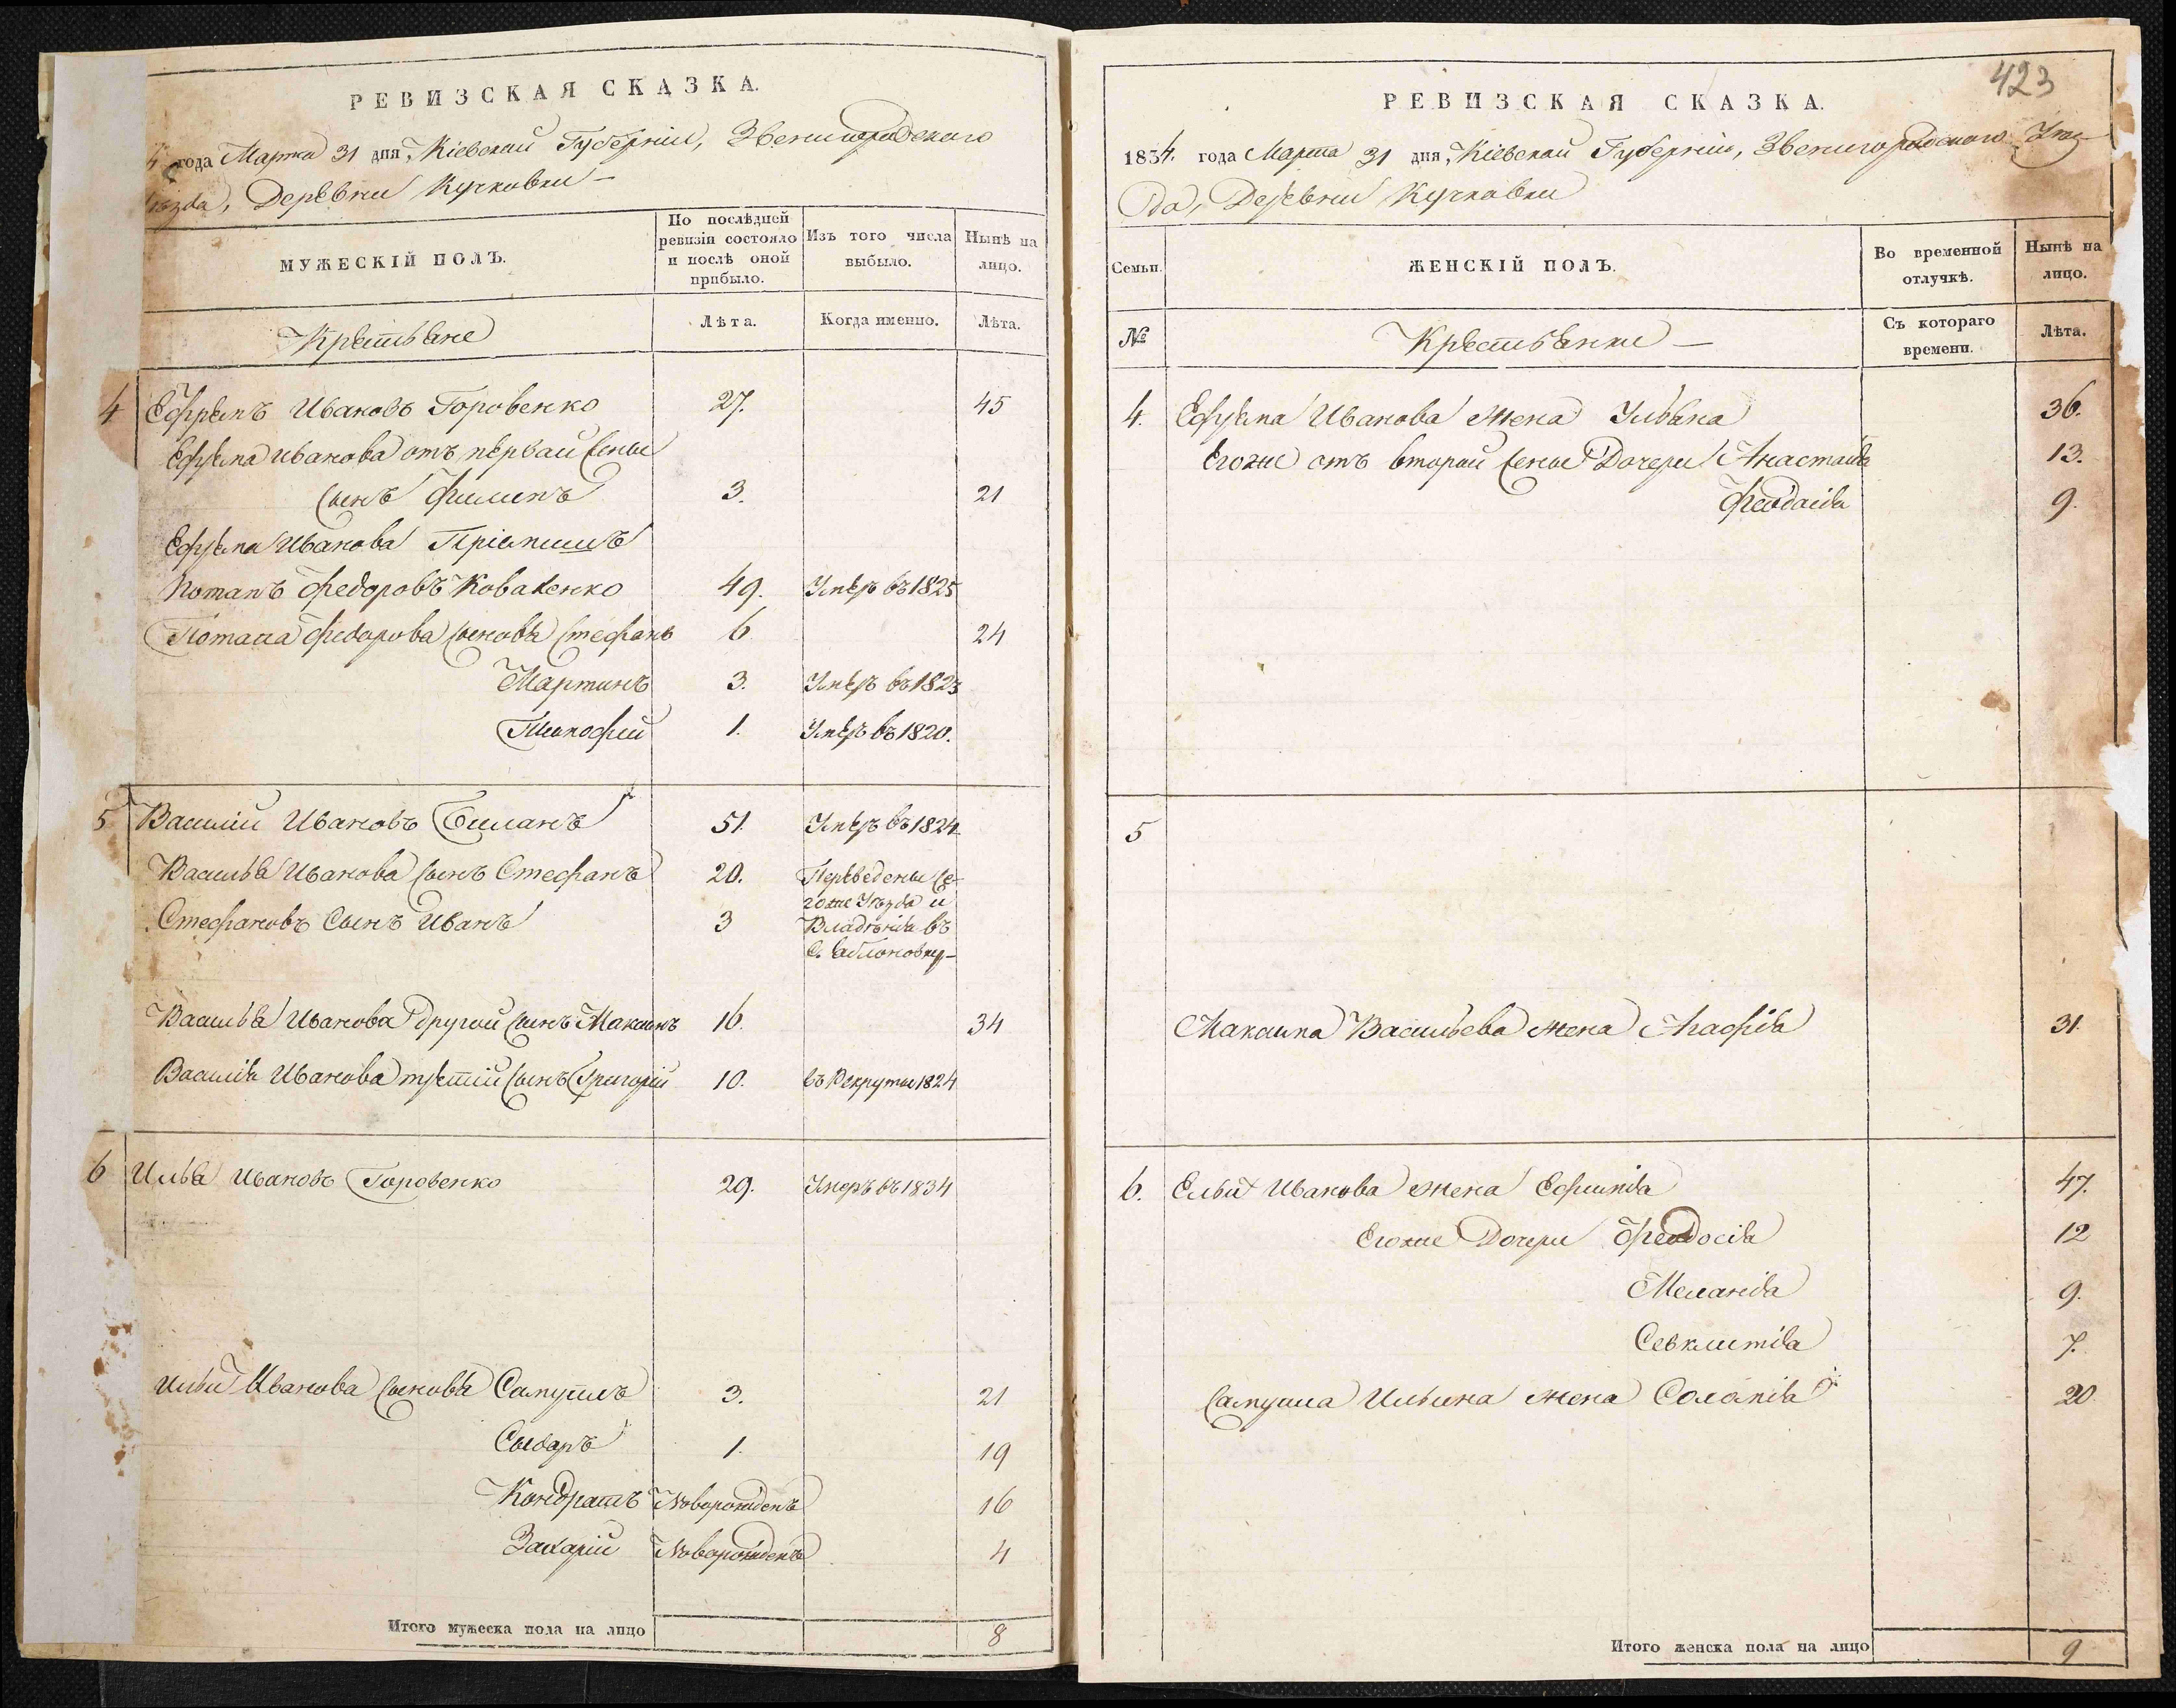 РЕВИЗСКАЯ СКАЗКА.
года Марта 31 дня, Кіевской Губерніи, Звенигородского
Деревни Кучковки
МУЖЕСКІЙ ПОЛЪ.
По послѣдней ревизіи состояло и послѣ оной прибыло.
Изъ того числа выбыло.
Нынѣ на лицо.
Крестьяне
Лѣта.
Когда именно.
Лѣта.
4 Ефремъ Ивановъ Горовенко 27. 45
Ефрема Иванова отъ первай жены
сынъ Филипъ 3. 21
Ефрема Иванова Пріемышъ
Потапъ Федоровъ Коваленко 49. Умеръ въ 1825
Потапа Федорова сыновья Стефанъ 6 24
Мартинъ 3. Умеръ въ 1823
Тимофей 1. Умеръ въ 1820.
5 Василий Ивановъ Биланъ 51. Умеръ въ 1824
Василья Иванова сынъ Стефанъ 20. Переведены се-
гоже Уѣзда и
Стефановъ Сынъ Иванъ 3 Владѣнія въ
С. Яблоновку
Василья Иванова другой сынъ Максимъ 16. 34
Василія Иванова третій сынъ Григорій 10. въ Рекруты 1824
6 Илья Ивановъ Горовенко 29. Умеръ въ 1834
Ильи Иванова сыновья Самуилъ 3. 21
Сыдаръ 1. 19
Кондратъ Новорожденъ 16
Захарій Новорожденъ 4
Итого мужеска пола на лицо 8
423
РЕВИЗСКАЯ СКАЗКА.
1834. года Марта 31 дня, Кіевской Губерніи, Звенигородского Уѣз-
да, Деревни Кучковки
Семьи.
ЖЕНСКІЙ ПОЛЪ.
Во временной отлучкѣ.
Нынѣ на лицо.
№
Крестьянки
Съ котораго времени.
Лѣта.
4. Ефрема Иванова жена Ульяна 36.
Егоже отъ второй жены Дочери Анастасія 13.
9.
5
Максима Васильева жена Агафія 31.
6. Ельи Иванова жена Ефимія 47.
Егоже Дочери Феодосія 12
Меланія 9.
Севклитія 7.
Самуила Ильина жена Соломія 20
Итого женска пола на лицо 9